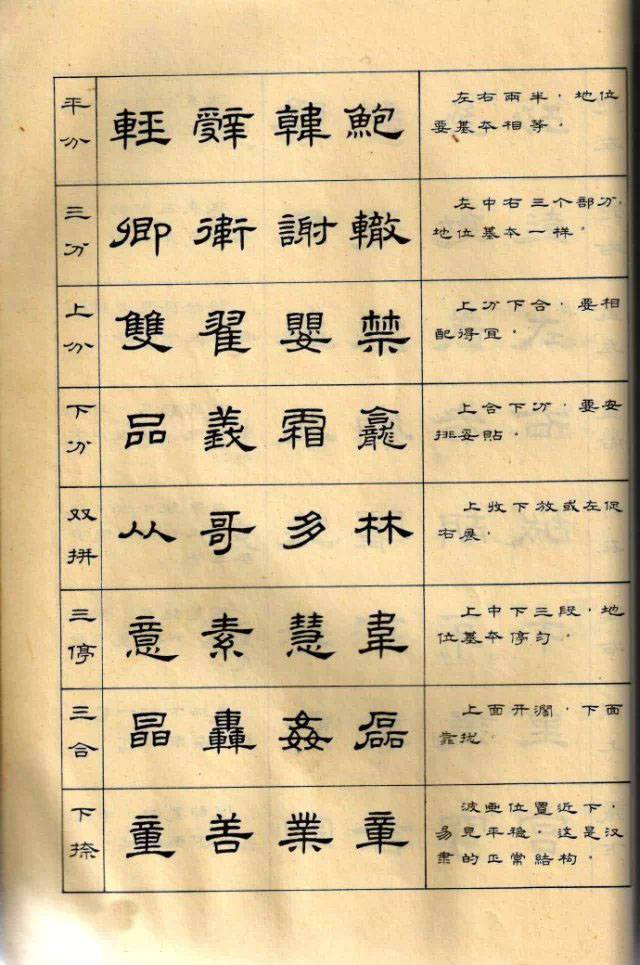 平分
輕 辤 韓 鮑
左右兩半，地位
要基本相等。
三分
卿 衛 謝 轍
左中右三个部分，
地位基本一样。
上分
雙 翟 嬰 禁
上分下合，要相
配得宜。
下分
品 義 霜 龕
上合下分，要安
排妥貼。
双拼
从 哥 多 林
上收下放或左促
右展。
三停
意 素 慧 韋
上中下三段，地
位基本停匀。
三合
晶 轟 姦 磊
上面开濶，下面
靠拢。
下捺
童 善 業 章
波画位置近下，
易見平稳，这是汉
隶的正常结构。